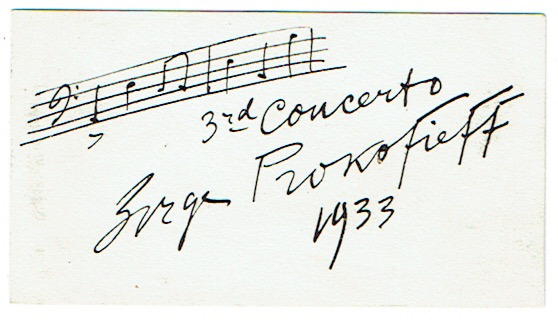 3rd Concerto
Serge Prokofieff
1933